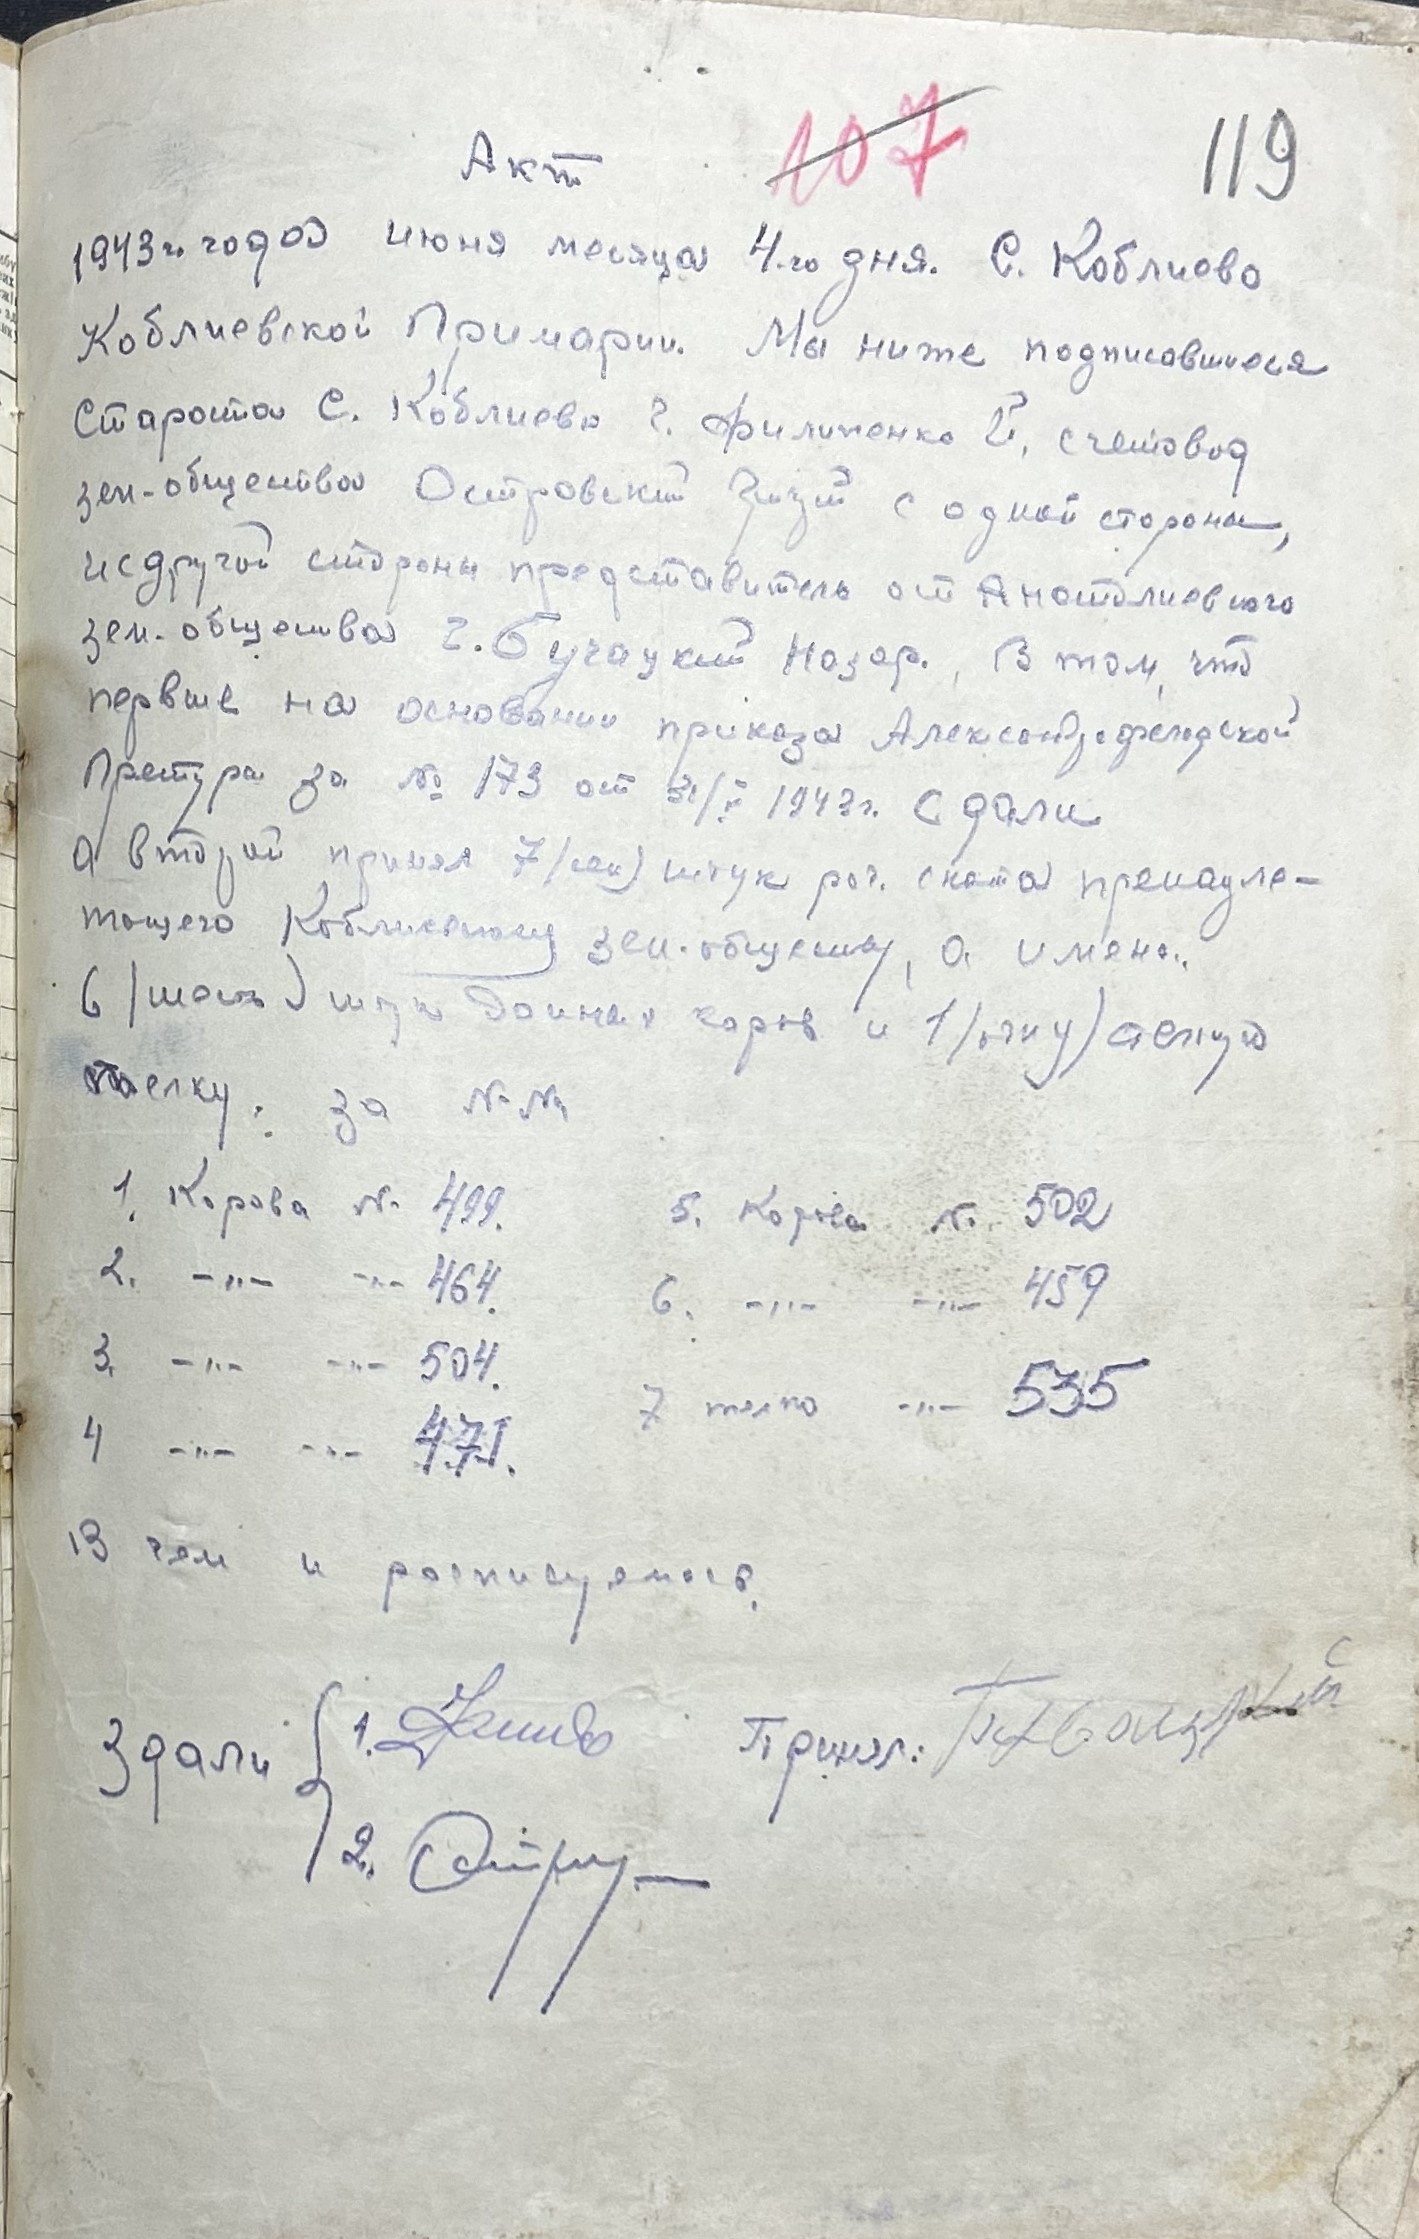 107 119
Акт
1943 г. года июня месяца 4-го дня. С. Коблиево
Коблиевской Примарии. Мы ниже подписавшиеся
Староста С. Коблиево г. Филипенко И, счетовод
зем-общества Островский с одной стороны,
и с другой стороны представитель от Анатолиевского
зем-общества г. Бучацкий Назар., В том, что
первые на основании приказа Александрфельдской
Претуры за № 173 от 31/V 1943 г. сдали
а второй принял 7/сем) штук рог. скота пренадле-
тощего Коблиевскому зем-обществу, а имено..
6 /шесть) штук Доиных коров и 1/одну) белую
телку: за №№
1. Корова № 499. 5. Корова № 502
2. -"- -"- 464. 6. -"- -"- 459
3 -"- -"- 504. 7 телка -"- 535
4 -"- -"- 471.
В чем и росписуемось.
Здали 1. Принял:
2.